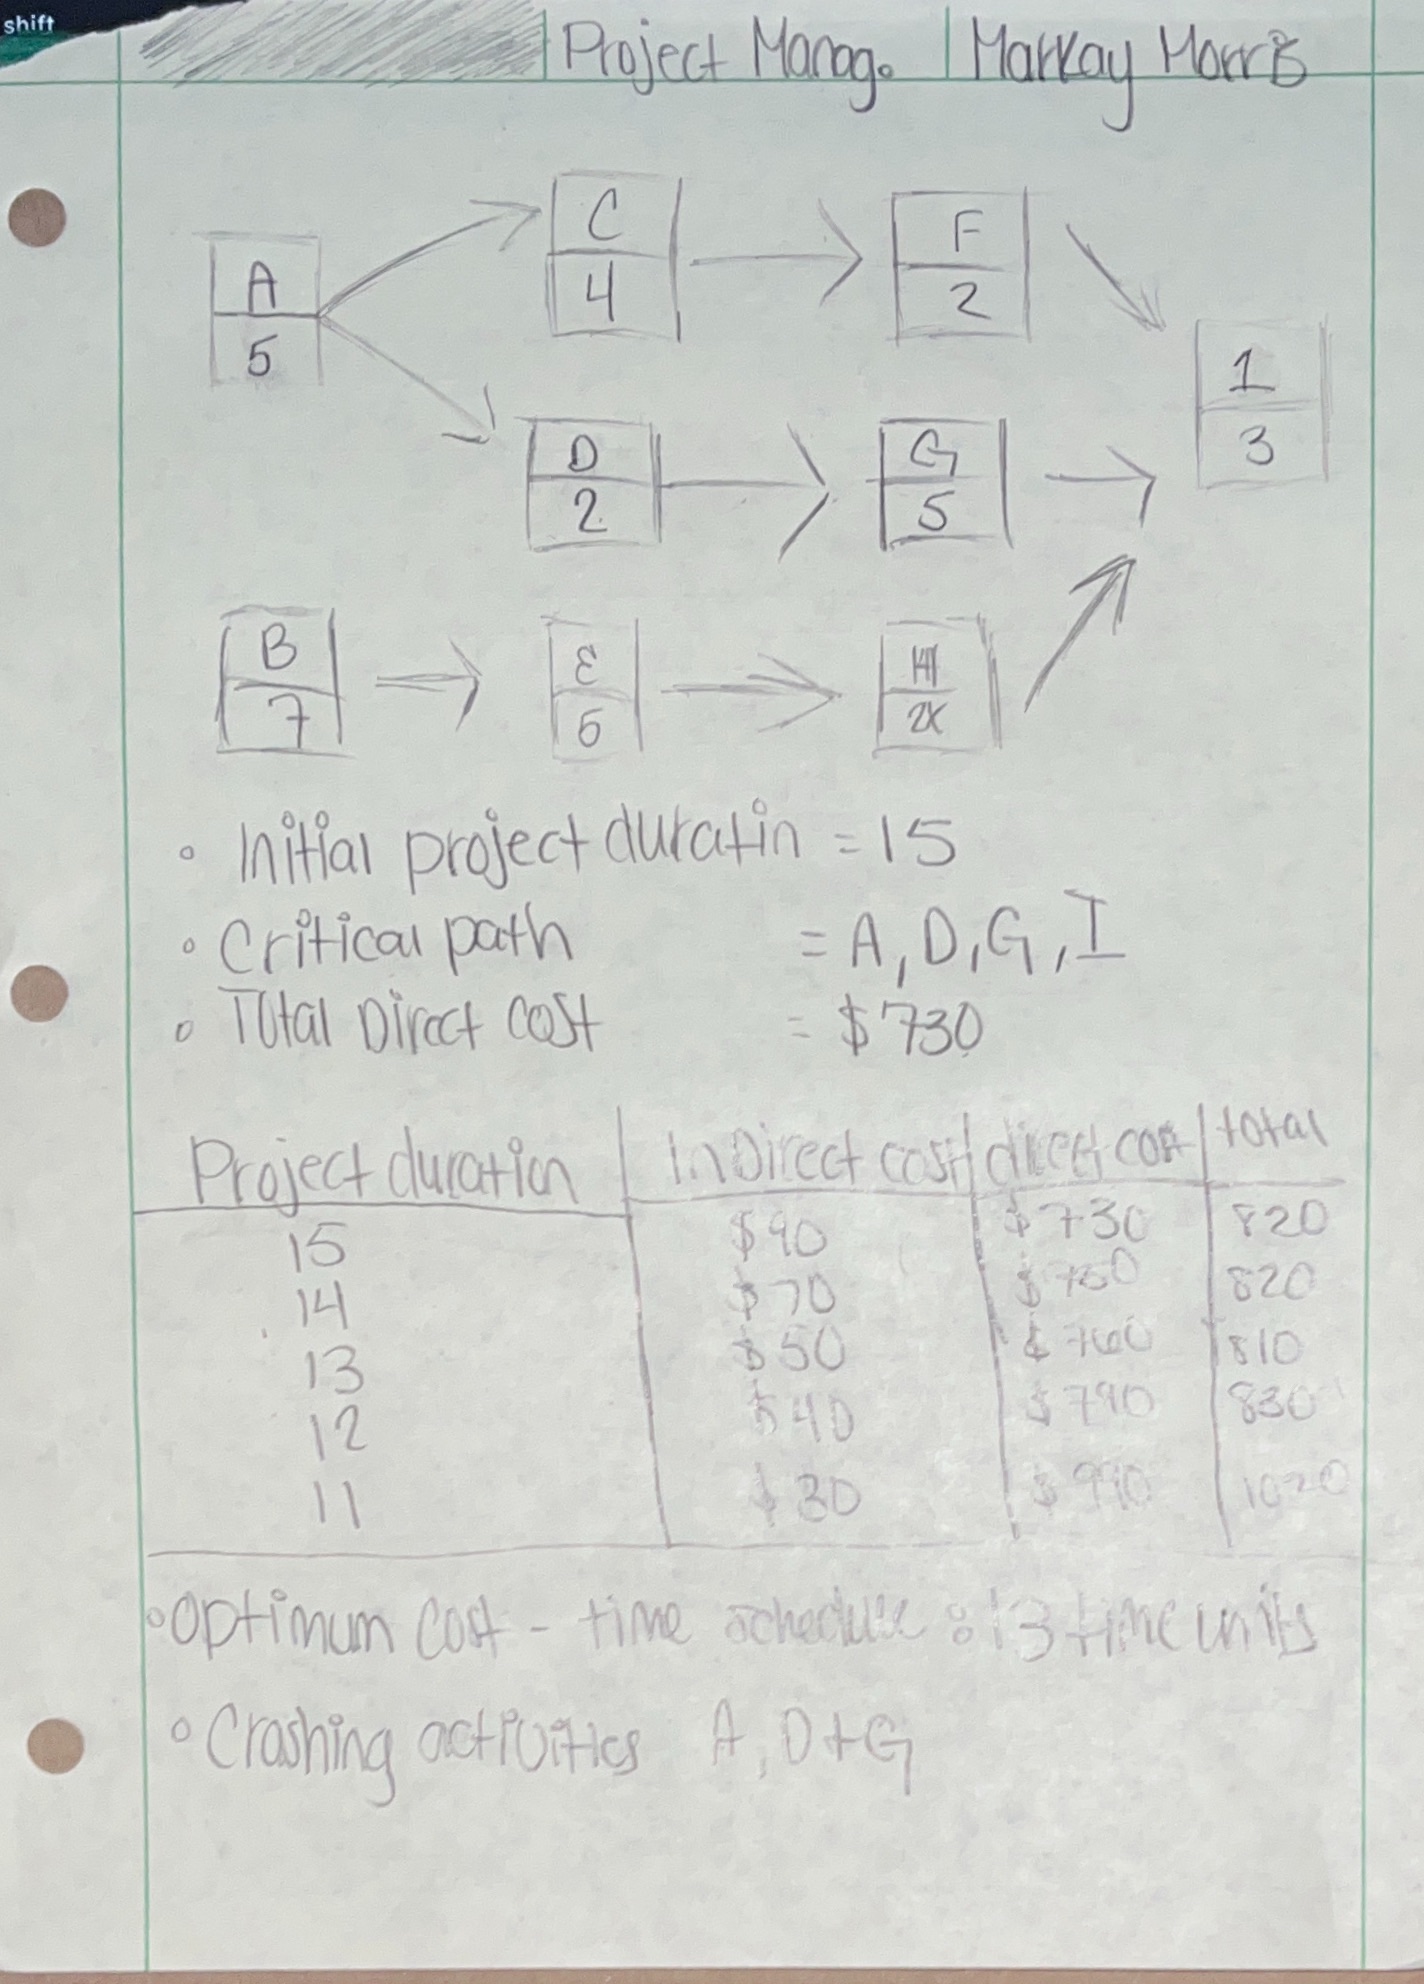 shift
Project Manag. Markay Morris
C
4
F
2
A
5
1
3
D
2
G
5
B
7
E
5
H
2x
• Initial project duratin = 15
• Critical path = A, D, G, I
• Total Direct cost = $730
Project duration InDirect cost direct cost total
15 $90 $730 820
14 $70 $750 820
13 $50 $760 810
12 $40 $790 830
11 $30 $990 1020
• Optimum cost - time schedule : 13 time units
• Crashing activities A, D + G